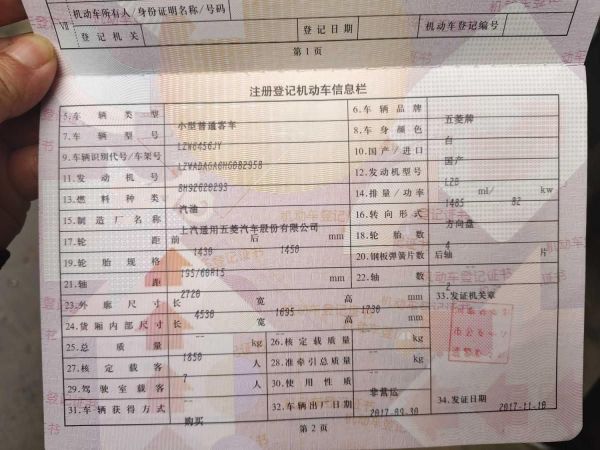 Ⅶ 机动车所有人/身份证明名称/号码
登记机关 登记日期 机动车登记编号
第1页
注册登记机动车信息栏
5.车辆类型 小型普通客车 6.车辆品牌 五菱牌
7.车辆型号 LZW6456JY 8.车身颜色 白
9.车辆识别代号/车架号 10.国产/进口 国产
11.发动机号 8H92620293 12.发动机型号 L2B
13.燃料种类 汽油 14.排量/功率 1485 ml/ 82 kw
15.制造厂名称 上汽通用五菱汽车股份有限公司 16.转向形式 方向盘
17.轮距 前 1430 后 1450 mm 18.轮胎数 4
19.轮胎规格 195/60R15 20.钢板弹簧片数 后轴 -- 片
21.轴距 2720 mm 22.轴数 2
23.外廓尺寸 长 4530 宽 1695 高 1730 mm 33.发证机关章
24.货厢内部尺寸 长 -- 宽 -- 高 -- mm
25.总质量 1850 kg 26.核定载质量 -- kg
27.核定载客 7 人 28.准牵引总质量 -- kg
29.驾驶室载客 -- 人 30.使用性质 非营运
31.车辆获得方式 购买 32.车辆出厂日期 2017-09-30 34.发证日期 2017-11-10
第2页